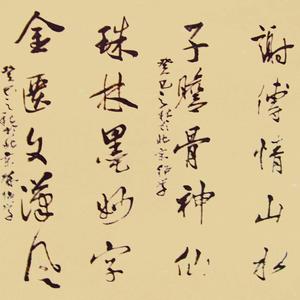 謝傅情山水
子瞻骨神仙
癸巳之秋於北京
珠林墨妙字
金匱文漢風
癸巳之秋於北京